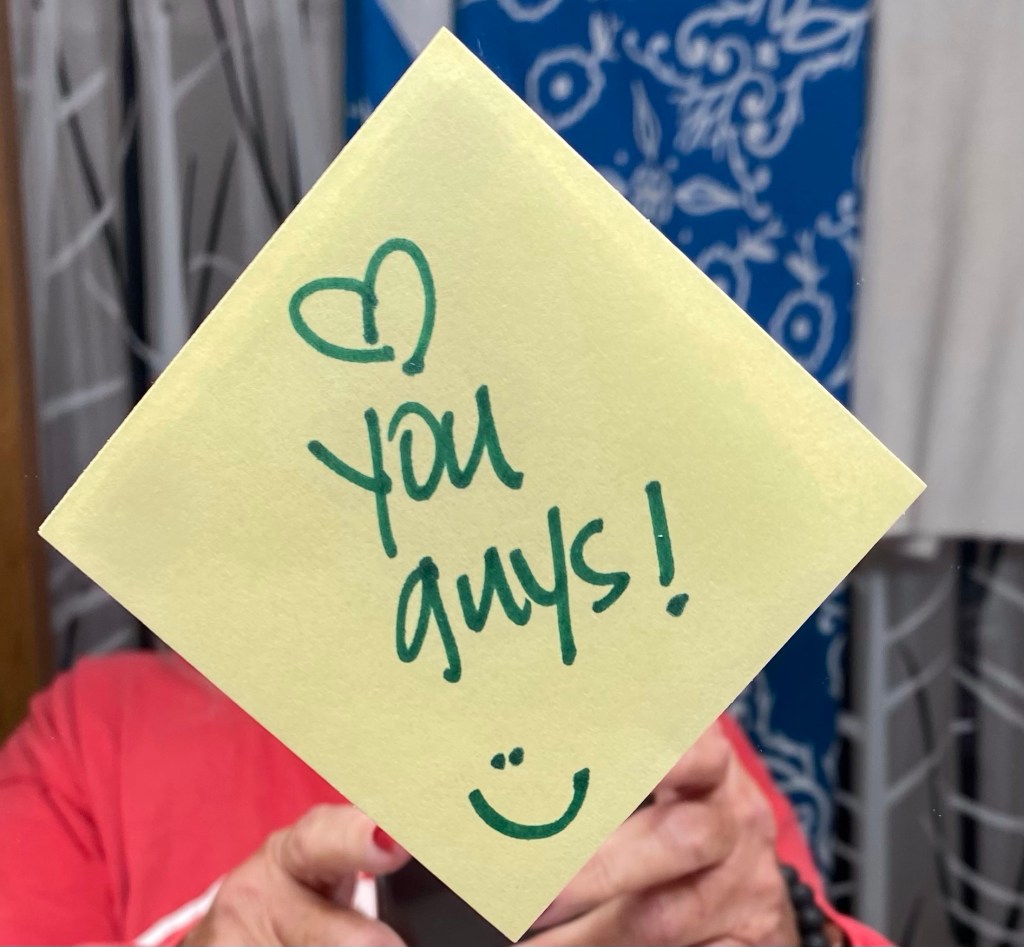 you
guys!